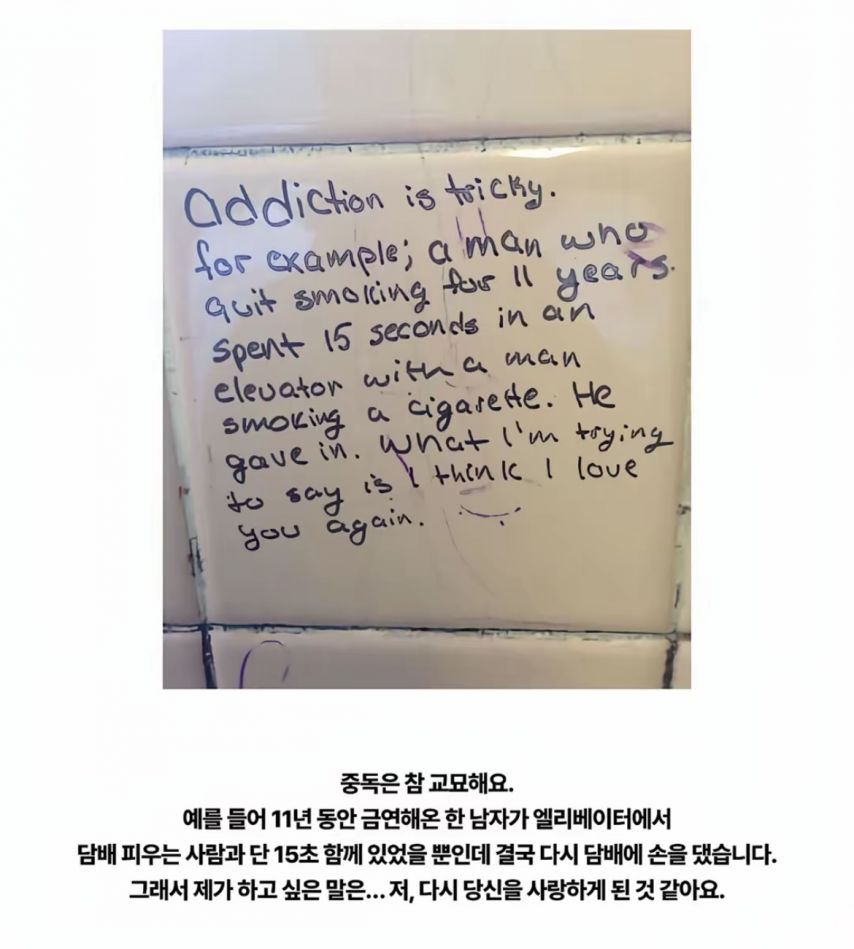 Addiction is tricky.
for example; a man who
quit smoking for 11 years.
spent 15 seconds in an
elevator with a man
smoking a cigarette. He
gave in. What I'm trying
to say is I think I love
you again.
중독은 참 교묘해요.
예를 들어 11년 동안 금연해온 한 남자가 엘리베이터에서
담배 피우는 사람과 단 15초 함께 있었을 뿐인데 결국 다시 담배에 손을 댔습니다.
그래서 제가 하고 싶은 말은... 저, 다시 당신을 사랑하게 된 것 같아요.